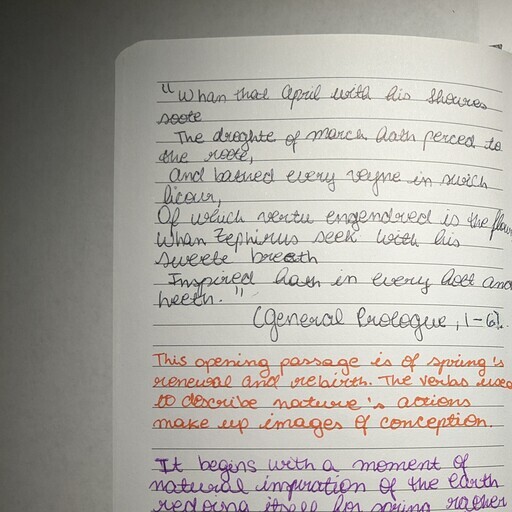 "Whan that April with his shoures
soote
The droghte of march hath perced to
the roote,
And bathed every veyne in swich
licour,
Of which vertu engendred is the flour
Whan Zephirus seek with his
sweete breath
Inspired hath in every holt and
heeth."
(General Prologue, 1-6).
This opening passage is of spring's
renewal and rebirth. The verbs used
to describe nature's actions
make up images of conception.
It begins with a moment of
natural inspiration of the earth
itself for spring rather